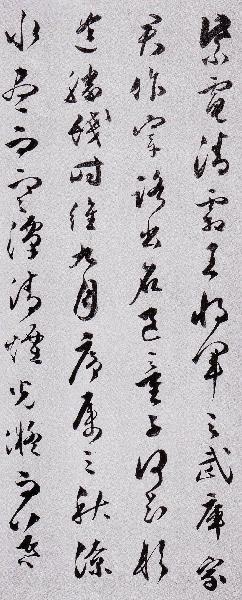 紫電清霜王將軍之武庫家
君作宰路出名區童子何知躬
逢勝餞時維九月序屬三秋潦
水盡而寒潭清煙光凝而暮